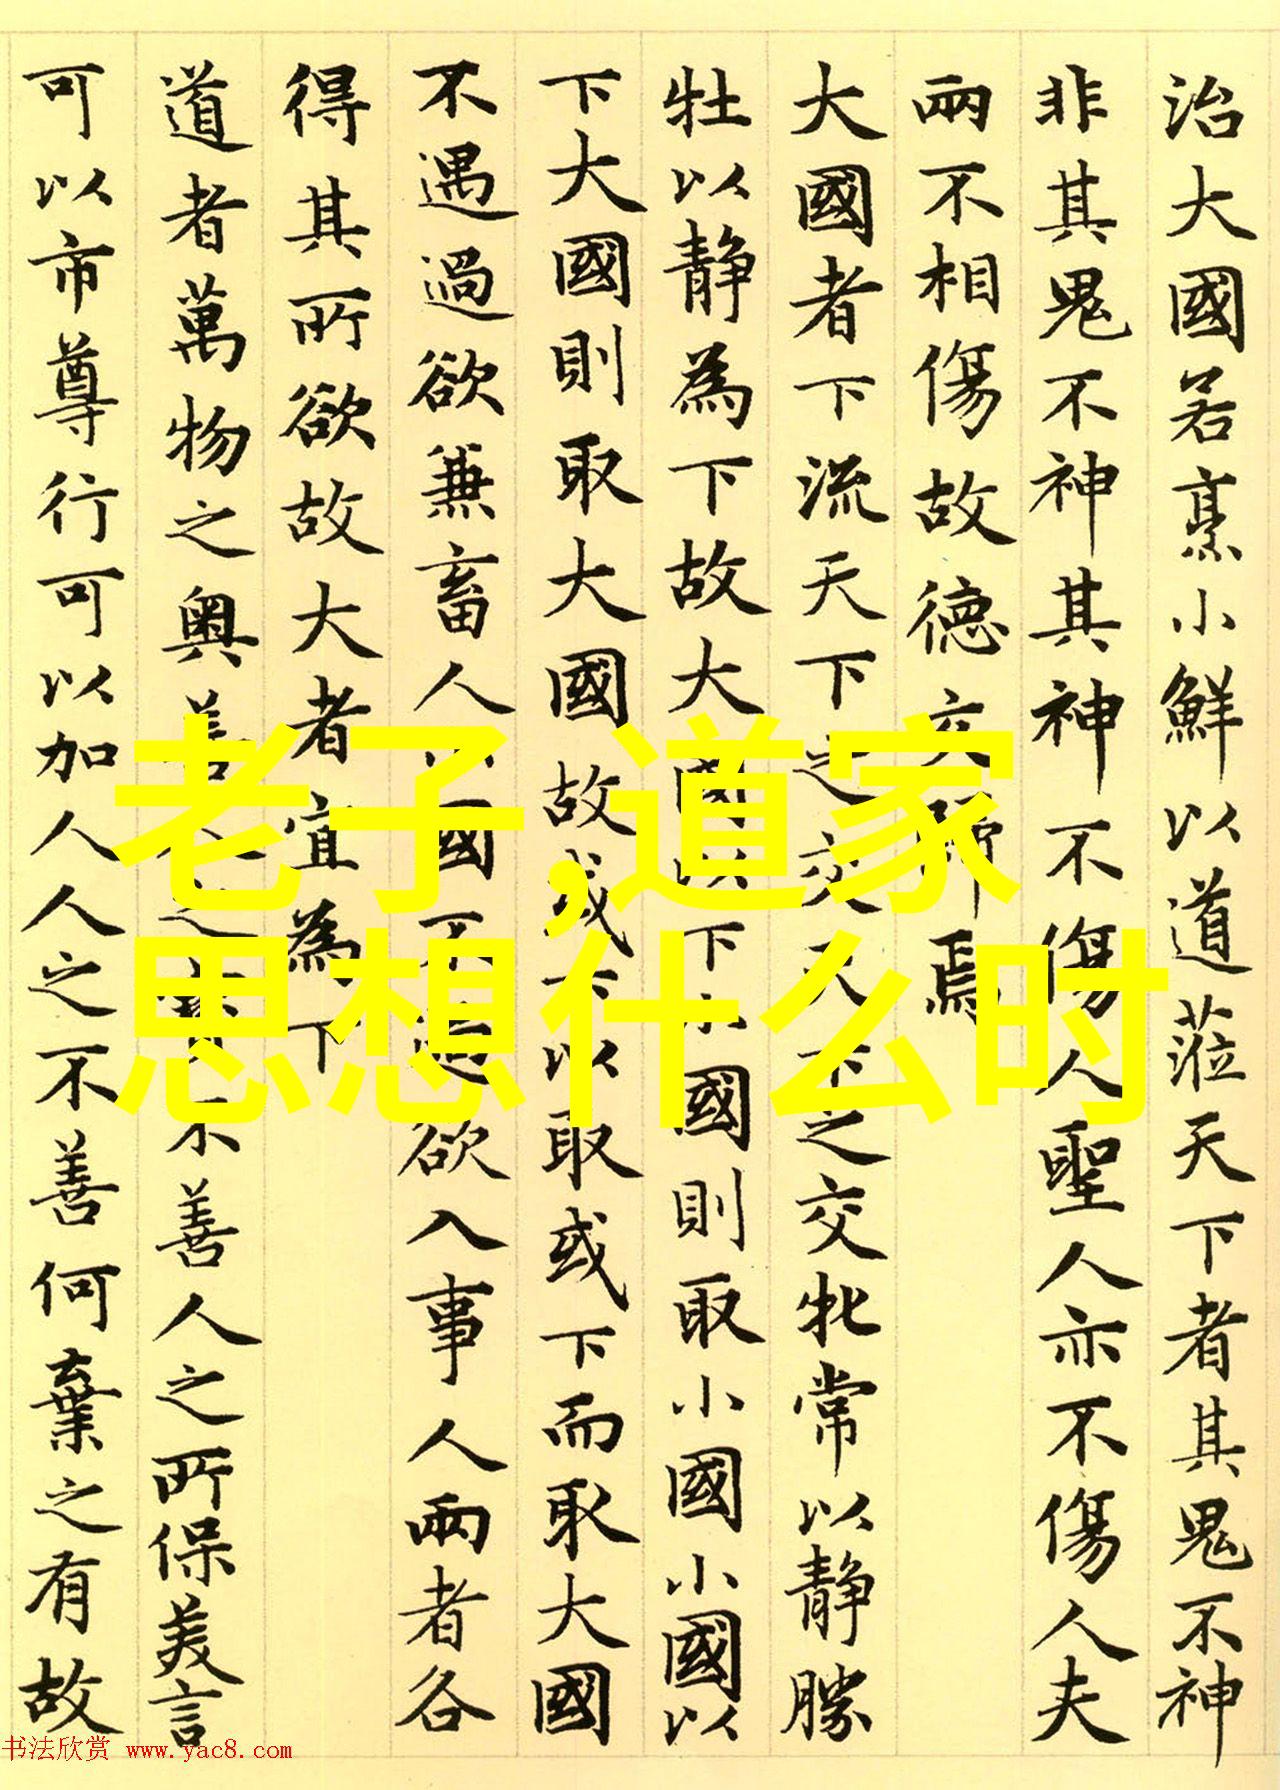 治大國若烹小鮮以道蒞天下者其鬼不神
非其鬼不神其神不傷人聖人亦不傷人夫
兩不相傷故德交歸焉
大國者下流天下之交天下之交牝常以靜勝
牡以靜為下故大國以下小國則取小國小國以
下大國則取大國故或下以取或下而取大國
不遇過欲兼畜人小國不過欲入事人兩者各
得其所欲故大者宜為下
道者萬物之奧善人之寶不善人之所保美言
可以市尊行可以加人人之不善何棄之有故
老子,道家
思想什么时
书法欣赏 www.yac8.com